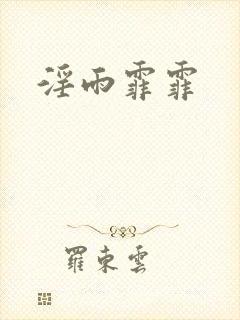 淫雨霏霏
羅東雲